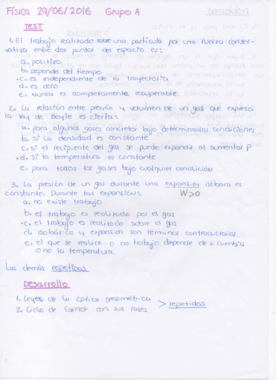 Física 29/06/2016 Grupo A
TEST
1. El trabajo realizado sobre una partícula por una fuerza conser-
vativa entre dos puntos del espacio es:
a. positivo
b. depende del tiempo
c. es independiente de la trayectoria
d. es cero
e. nunca es completamente recuperable.
2. La relación entre presión y volumen de un gas que expresa
la ley de Boyle es cierta:
a. para algunos gases concretos bajo determinadas condiciones
b. si la densidad es constante
c. si el recipiente del gas se puede expandir al aumentar P
d. si la temperatura es constante
e. para todos los gases bajo cualquier condición
3. La presión de un gas durante una expansión isóbara es
constante. Durante tal expansión: W>0
a. no existe trabajo
b. el trabajo es realizado por el gas
c. el trabajo es realizado sobre el gas
d. isobárico y expansión son términos contradictorios
e. el que se realice o no trabajo depende de si cambia
o no la temperatura.
Las demás repetidas
Desarrollo
1. Leyes de la óptica geométrica
> repetidas
2. Ciclo de Carnot con sus fases